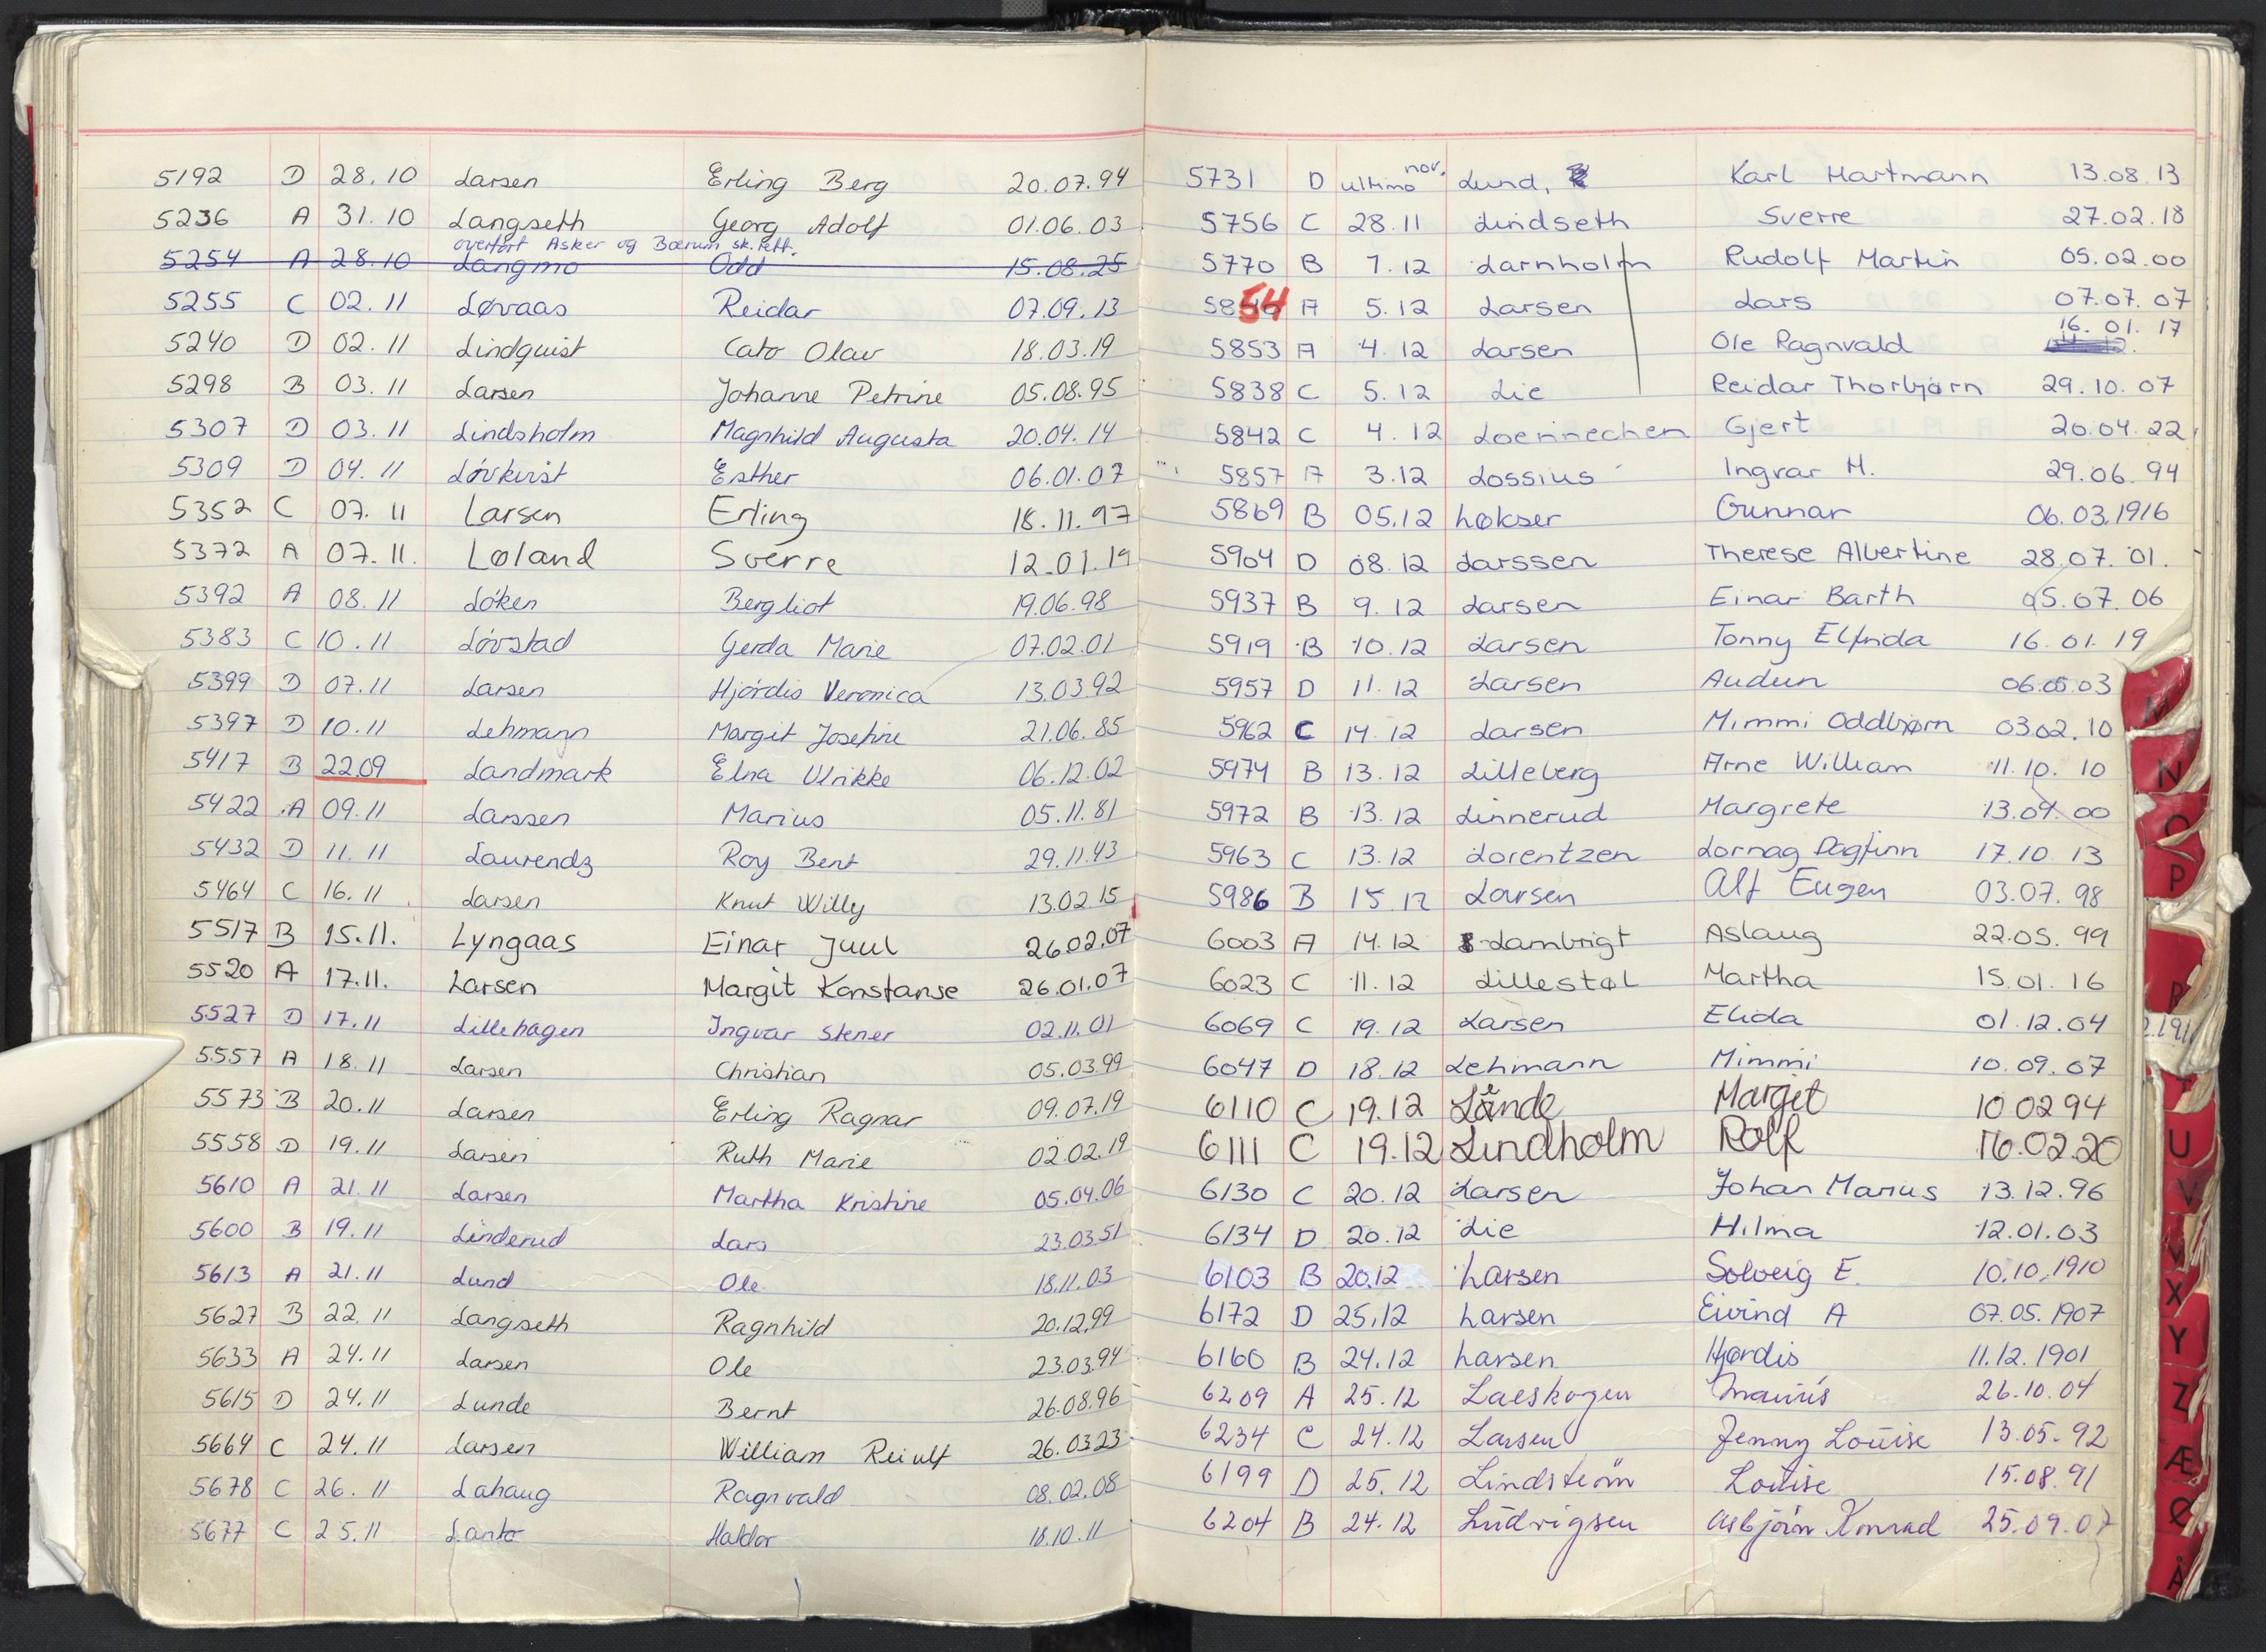 5192 D 28.10 Larsen Erling Berg 20.07.94
5236 A 31.10 Langseth Georg Adolf 01.06.03
overført Asker og Bærum sk.rett.
5254 A 28.10 Langmo Odd 15.08.25
5255 C 02.11 Løvaas Reidar 07.09.13
5240 D 02.11 Lindquist Cato Olav 18.03.19
5298 B 03.11 Larsen Johanne Petrine 05.08.95
5307 D 03.11 Lindsholm Magnhild Augusta 20.04.14
5309 D 04.11 Lövkvist Esther 06.01.07
5352 C 07.11 Larsen Erling 18.11.97
5372 A 07.11. Løland Sverre 12.01.19
5392 A 08.11 Löken Bergliot 19.06.98
5383 C 10.11 Lövstad Gerda Marie 07.02.01
5399 D 07.11 Larsen Hjördis Veronica 13.03.92
5397 D 10.11 Lehmann Margit Josefine 21.06.85
5417 B 22.09 Landmark Elna Ulrikke 06.12.02
5422 A 09.11 Larssen Marius 05.11.81
5432 D 11.11 Laurendz Roy Bent 29.11.43
5464 C 16.11 Larsen Knut Willy 13.02.15
5517 B 15.11. Lyngaas Einar Juul 26.02.07
5520 A 17.11. Larsen Margit Konstanse 26.01.07
5527 D 17.11 Lillehagen Ingvar Stener 02.11.01
5557 A 18.11 Larsen Christian 05.03.99
5573 B 20.11 Larsen Erling Ragnar 09.07.19
5558 D 19.11 Larsen Ruth Marie 02.02.19
5610 A 21.11 Larsen Martha Kristine 05.04.06
5600 B 19.11 Linderud Lars 23.03.51
5613 A 21.11 Lund Ole 18.11.03
5627 B 22.11 Langseth Ragnhild 20.12.99
5633 A 24.11 Larsen Ole 23.03.94
5615 D 24.11 Lunde Bernt 26.08.96
5664 C 24.11 Larsen William Reiulf 26.03.23
5678 C 26.11 Lahaug Ragnvald 08.02.08
5677 C 25.11 Lanto Haldor 18.10.11
5731 D ultimo nov. Lund, Karl Hartmann 13.08.13
5756 C 28.11 Lindseth Sverre 27.02.18
5770 B 7.12 Larnholm Rudolf Martin 05.02.00
5854 A 5.12 Larsen Lars 07.07.07
5853 A 4.12 Larsen Ole Ragnvald 16.01.17
5838 C 5.12 Lie Reidar Thorbjørn 29.10.07
5842 C 4.12 Loennechen Gjert 20.04.22
5857 A 3.12 Lossius Ingvar H. 29.06.94
5869 B 05.12 Løkser Gunnar 06.03.1916
5904 D 08.12 Larssen Therese Albertine 28.07.01.
5937 B 9.12 Larsen Einar Barth 05.07.06
5919 B 10.12 Larsen Tonny Elfrida 16.01.19
5957 D 11.12 Larsen Audun 06.05.03
5962 C 14.12 Larsen Mimmi Oddbjørn 03.02.10
5974 B 13.12 Lilleberg Arne William 11.10.10
5972 B 13.12 Linnerud Margrete 13.09.00
5963 C 13.12 Lorentzen Lornag Dagfinn 17.10.13
5986 B 15.12 Larsen Alf Eugen 03.07.98
6003 A 14.12 Lambrigt Aslaug 22.05.99
6023 C 11.12 Lillestøl Martha 15.01.16
6069 C 19.12 Larsen Elida 01.12.04
6047 D 18.12 Lehmann Mimmi 10.09.07
6110 C 19.12 Lånde Margit 10.02 94
6111 C 19.12 Lindholm Rolf 16.02.20
6130 C 20.12 Larsen Johan Marius 13.12.96
6134 D 20.12 Lie Hilma 12.01.03
6103 B 20.12 Larsen Solveig E. 10.10.1910
6172 D 25.12 Larsen Eivind A 07.05.1907
6160 B 24.12 Larsen Hjørdis 11.12.1901
6209 A 25.12 Laeskogen Marius 26.10.04
6234 C 24.12 Larsen Jenny Louise 13.05.92
6199 D 25.12 Lindström Louise 15.08.91
6204 B 24.12 Ludvigsen Asbjörn Konrad 25.09.07
M
N
O
P
R
T
U
V
X
Y
Z
Æ
Ø
Å